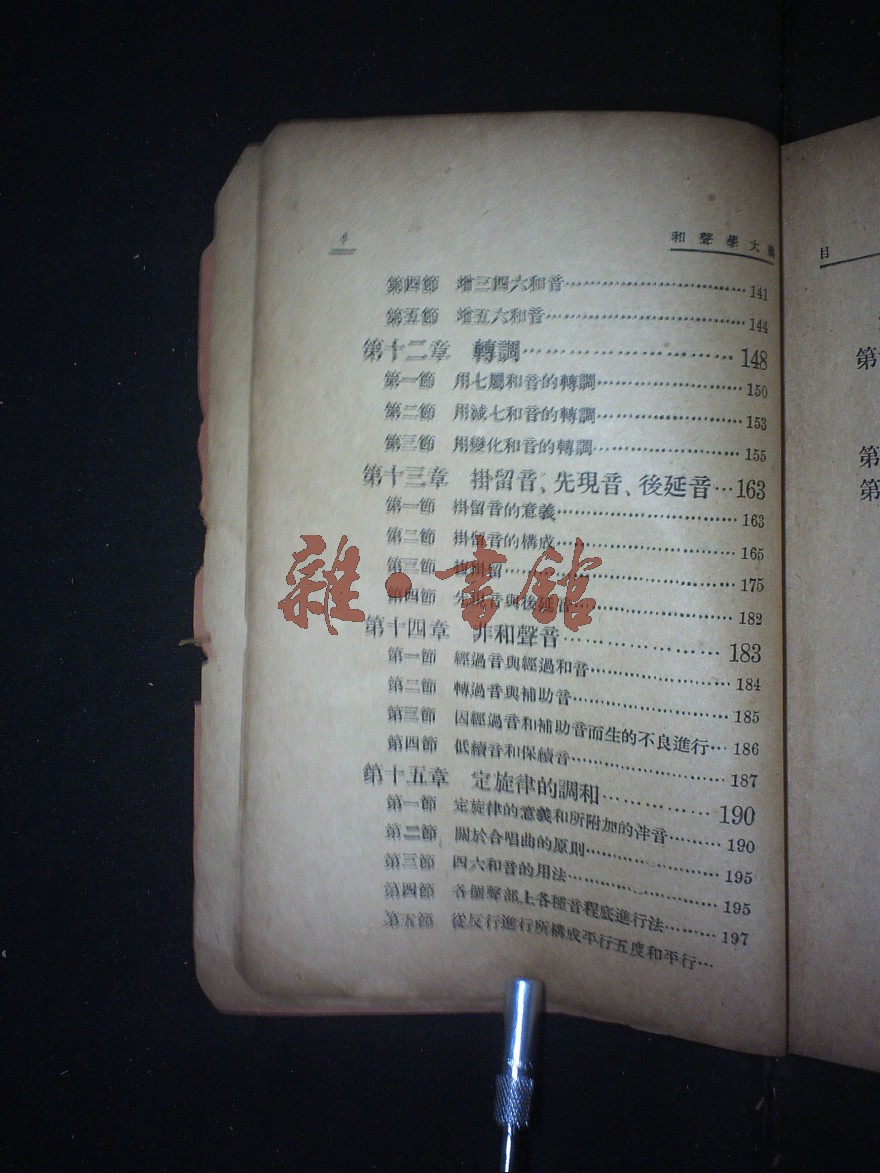 4
和聲學大綱
第四節 增三四六和音…………………………141
第五節 增五六和音…………………………144
第十二章 轉調…………………………148
第一節 用七屬和音的轉調…………………………150
第二節 用減七和音的轉調…………………………153
第三節 用變化和音的轉調…………………………155
第十三章 掛留音、先現音、後延音…163
第一節 掛留音的意義…………………………163
第二節 掛留音的構成…………………………165
第三節 複掛留…………………………175
第四節 先現音與後延音…………………………182
第十四章 非和聲音…………………………183
第一節 經過音與經過和音…………………………184
第二節 轉過音與補助音…………………………185
第三節 因經過音和補助音而生的不良進行…186
第四節 低續音和保續音…………………………187
第十五章 定旋律的調和…………………………190
第一節 定旋律的意義和所附加的泮音………190
第二節 關於合唱曲的原則…………………………195
第三節 四六和音的用法…………………………195
第四節 各個聲部上各種音程底進行法………197
第五節 從反行進行所構成平行五度和平行…
雜·書館
目
第
第
第